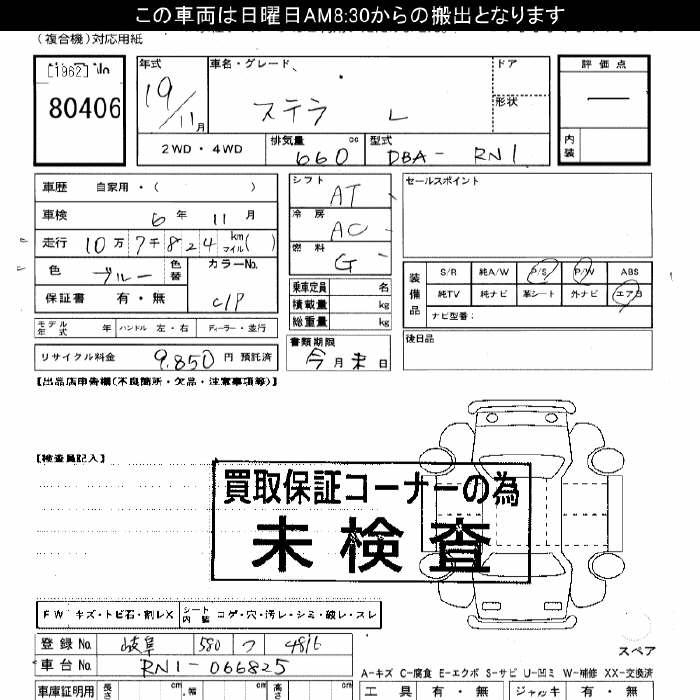 この車両は日曜日AM8:30からの搬出となります
(複合機)対応用紙
[1962]
80406
年式
19/11月
車名・グレード
ステラ L
ドア
形状
評価点
—
内装
2WD・4WD
排気量 660 cc
型式 DBA- RN1
車歴 自家用・( )
車検 6年 11月
走行 10万 7千 824 km マイル( )
色 ブルー 色替
カラーNo. C/P
保証書 有・無
モデル年式 年 ハンドル 左・右 ディーラー・並行
リサイクル料金 9,850 円 預託済
シフト AT
冷房 AC
燃料 G
乗車定員 名
積載量 kg
総重量 kg
書類期限
今月末日
セールスポイント
装備品
S/R 純A/W P/S P/W ABS
純TV 純ナビ 革シート 外ナビ エアB
ナビ型番:
後日品
【出品店申告欄(不良箇所・欠品・注意事項等)】
【検査員記入】
買取保証コーナーの為
未検査
FW キズ・トビ石・割レX シート内装 コゲ・穴・汚レ・シミ・破レ・スレ
登録No 岐阜 580 つ 4816
車台No. RN1-066825
スペア
A-キズ C-腐食 E-エクボ S-サビ U-凹ミ W-補修 XX-交換済
車庫証明用 長さ cm 幅 cm 高さ cm
工具 有・無 ジャッキ 有・無